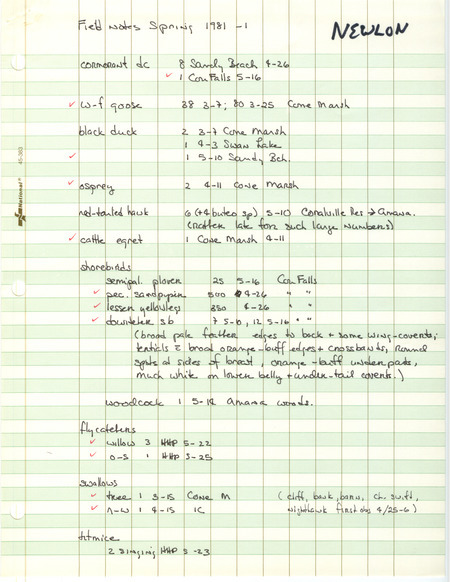 Field notes Spring 1981 -1
NEWLON
cormorant dc 8 Sandy Beach 4-26
✓ 1 Con Falls 5-16
✓ w-f goose 38 3-7; 80 3-25 Cone Marsh
black duck 2 3-7 Cone Marsh
1 4-3 Swan Lake
✓ 1 5-10 Sandy Bch.
✓ osprey 2 4-11 Cone Marsh
red-tailed hawk 6 (+4 buteo sp) 5-10 Coralville Res → Amana.
(rather late for such large numbers)
✓ cattle egret 1 Cone Marsh 4-11
shorebirds
semipal. plover 25 5-16 Con Falls
✓ pec. sandpiper 500 4-26 " "
✓ lesser yellowlegs 350 4-26 " "
✓ dowitcher s b 7 5-6, 12 5-16 " "
(broad pale feather edges to back + some wing-coverts;
tertials c broad orange-buff edges + crossbands, round
spots at sides of breast, orange-buff underparts,
much white on lower belly + under-tail coverts.)
woodcock 1 5-12 Amana woods.
flycatchers
✓ willow 3 HHP 5-22
✓ o-s 1 HHP 5-25
swallows
✓ tree 1 3-15 Cone M (cliff, bank, barn, ch. swift,
✓ r-w 1 4-15 IC nighthawk first obs 4/25-6)
titmice
2 singing HHP 5-23
National
45-383